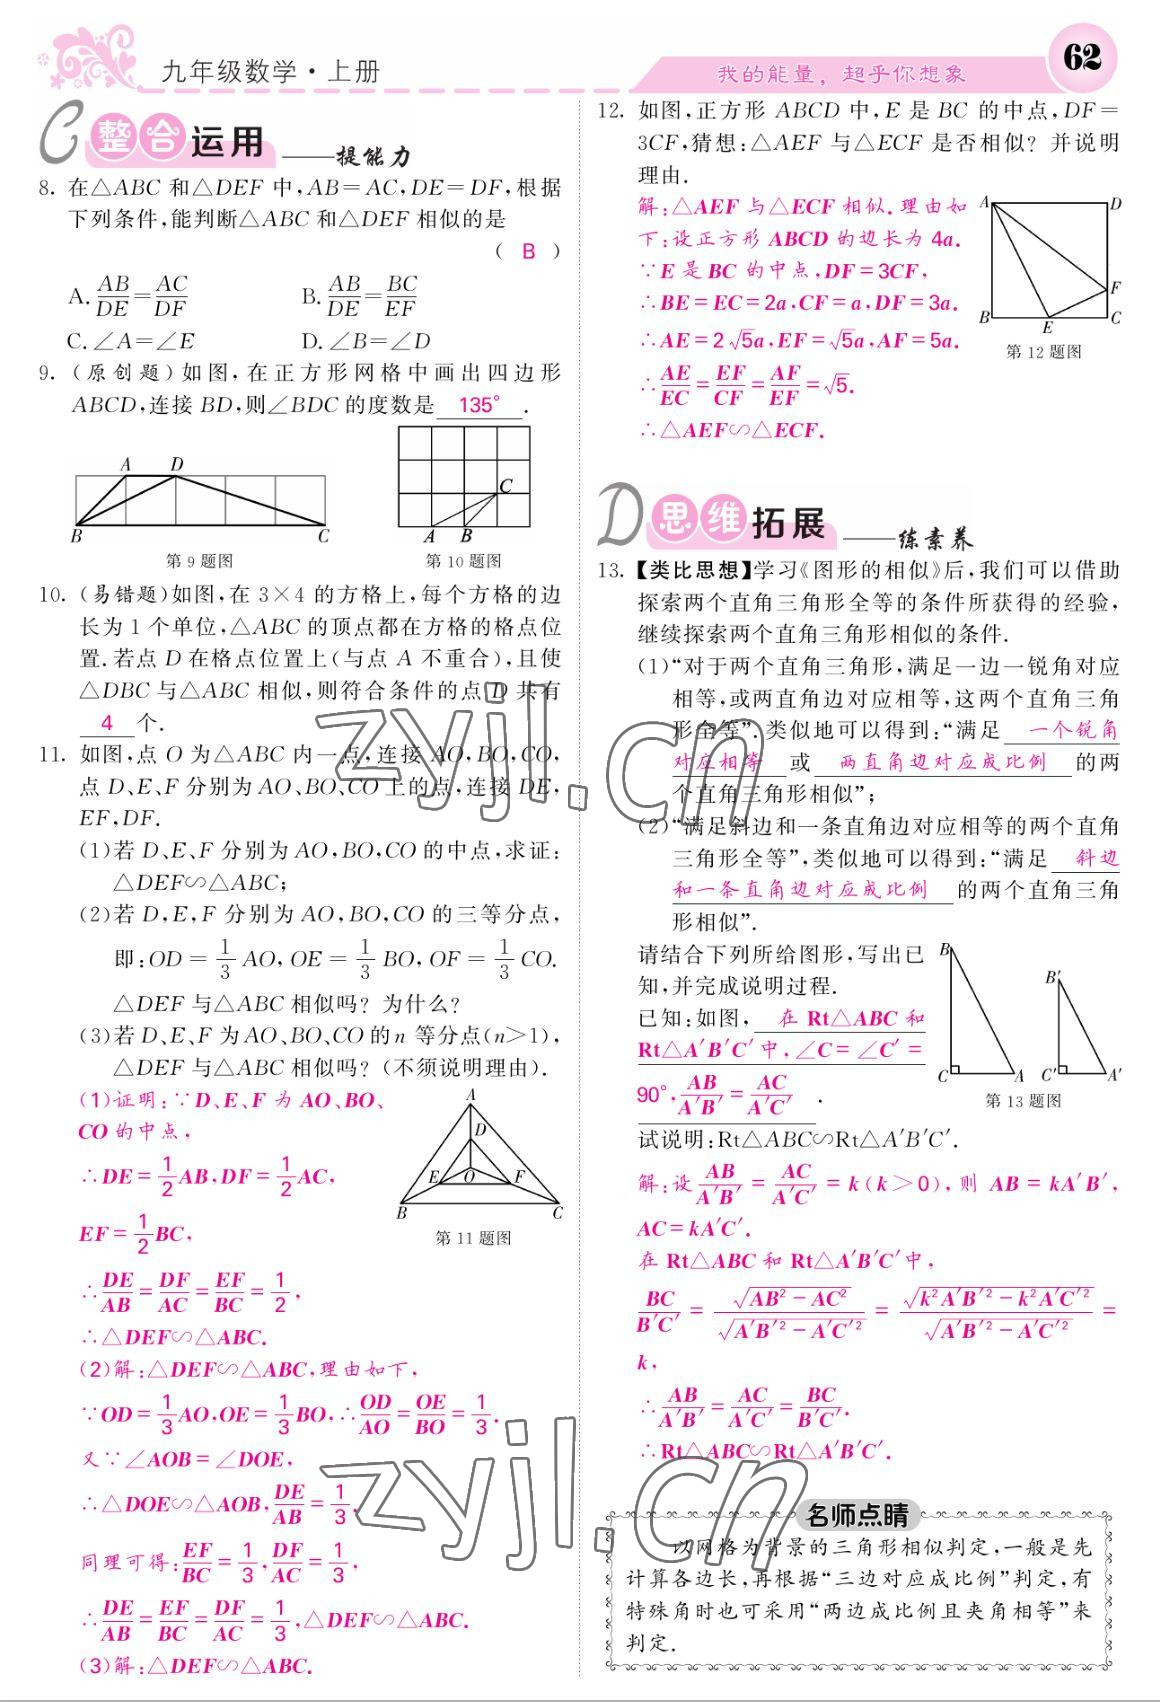 九年级数学·上册
我的能量，超乎你想象
62
C 整合运用 ——提能力
8. 在△ABC 和△DEF 中，AB＝AC，DE＝DF，根据
下列条件，能判断△ABC 和△DEF 相似的是
（ B ）
A. AB/DE＝AC/DF B. AB/DE＝BC/EF
C. ∠A＝∠E D. ∠B＝∠D
9. (原创题)如图，在正方形网格中画出四边形
ABCD，连接 BD，则∠BDC 的度数是 135° .
A D B C
第 9 题图
C A B
第 10 题图
10. (易错题)如图，在 3×4 的方格上，每个方格的边
长为 1 个单位，△ABC 的顶点都在方格的格点位
置. 若点 D 在格点位置上(与点 A 不重合)，且使
△DBC 与△ABC 相似，则符合条件的点 D 共有
4 个.
11. 如图，点 O 为△ABC 内一点，连接 AO，BO，CO，
点 D、E、F 分别为 AO、BO、CO 上的点，连接 DE，
EF，DF.
(1)若 D、E、F 分别为 AO，BO，CO 的中点，求证：
△DEF∽△ABC；
(2)若 D，E，F 分别为 AO，BO，CO 的三等分点，
即：OD＝1/3 AO，OE＝1/3 BO，OF＝1/3 CO.
△DEF 与△ABC 相似吗？为什么？
(3)若 D、E、F 为 AO、BO、CO 的 n 等分点(n＞1)，
△DEF 与△ABC 相似吗？(不须说明理由).
(1)证明：∵D、E、F 为 AO、BO、
CO 的中点，
∴DE＝1/2 AB，DF＝1/2 AC，
EF＝1/2 BC，
∴DE/AB＝DF/AC＝EF/BC＝1/2，
∴△DEF∽△ABC.
A D E O F B C
第 11 题图
(2)解：△DEF∽△ABC，理由如下，
∵OD＝1/3 AO，OE＝1/3 BO，∴OD/AO＝OE/BO＝1/3.
又∵∠AOB＝∠DOE，
∴△DOE∽△AOB，DE/AB＝1/3，
同理可得：EF/BC＝1/3，DF/AC＝1/3，
∴DE/AB＝EF/BC＝DF/AC＝1/3，△DEF∽△ABC.
(3)解：△DEF∽△ABC.
12. 如图，正方形 ABCD 中，E 是 BC 的中点，DF＝
3CF，猜想：△AEF 与△ECF 是否相似？并说明
理由.
解：△AEF 与△ECF 相似. 理由如
下：设正方形 ABCD 的边长为 4a.
∵E 是 BC 的中点，DF＝3CF，
∴BE＝EC＝2a，CF＝a，DF＝3a.
∴AE＝2√5a，EF＝√5a，AF＝5a.
∴AE/EC＝EF/CF＝AF/EF＝√5.
∴△AEF∽△ECF.
A D F B E C
第 12 题图
D 思维拓展 ——练素养
13. 【类比思想】学习《图形的相似》后，我们可以借助
探索两个直角三角形全等的条件所获得的经验，
继续探索两个直角三角形相似的条件.
(1)“对于两个直角三角形，满足一边一锐角对应
相等，或两直角边对应相等，这两个直角三角
形全等”. 类似地可以得到：“满足 一个锐角
对应相等 或 两直角边对应成比例 的两
个直角三角形相似”；
(2)“满足斜边和一条直角边对应相等的两个直角
三角形全等”，类似地可以得到：“满足 斜边
和一条直角边对应成比例 的两个直角三角
形相似”.
请结合下列所给图形，写出已
知，并完成说明过程.
已知：如图， 在 Rt△ABC 和
Rt△A′B′C′中，∠C＝∠C′＝
90°，AB/A′B′＝AC/A′C′ .
B C A B′ C′ A′
第 13 题图
试说明：Rt△ABC∽Rt△A′B′C′.
解：设AB/A′B′＝AC/A′C′＝k(k＞0)，则 AB＝kA′B′，
AC＝kA′C′.
在 Rt△ABC 和 Rt△A′B′C′中，
BC/B′C′＝√(AB²－AC²)/√(A′B′²－A′C′²)＝√(k²A′B′²－k²A′C′²)/√(A′B′²－A′C′²)＝
k，
∴AB/A′B′＝AC/A′C′＝BC/B′C′.
∴Rt△ABC∽Rt△A′B′C′.
名师点睛
以网格为背景的三角形相似判定，一般是先
计算各边长，再根据“三边对应成比例”判定，有
特殊角时也可采用“两边成比例且夹角相等”来
判定.
zyjl.cn
zyjl.cn